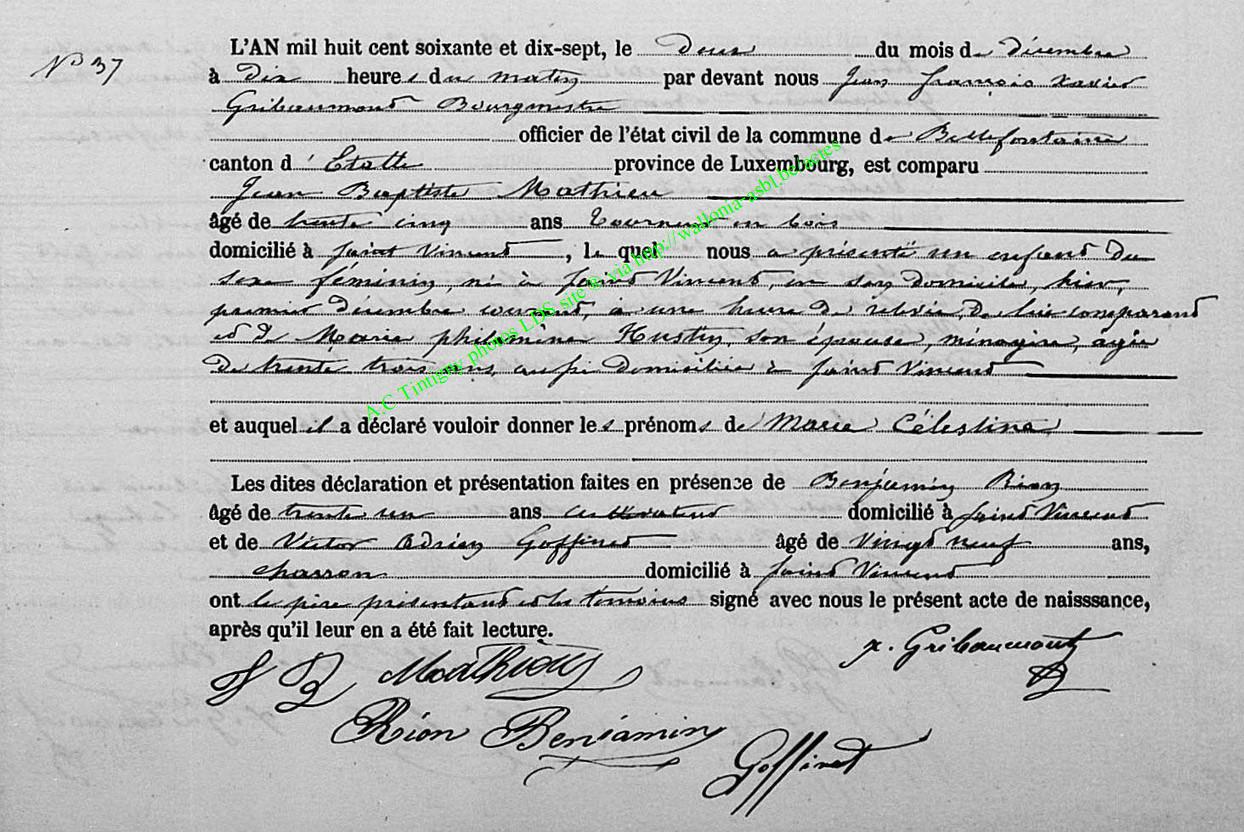 N° 37
L'AN mil huit cent soixante et dix-sept, le deux du mois de décembre
à dix heures du matin par devant nous Jean françois xavier
Gribaumont Bourgmestre
officier de l'état civil de la commune de Bellefontaine
canton d'Etalle province de Luxembourg, est comparu
Jean Baptiste Mathieu
âgé de trente cinq ans tourneur en bois
domicilié à saint Vincent, lequel nous a présenté un enfant du
sexe féminin, né à saint Vincent, en son domicile, hier,
premier décembre courant, à une heure de relevée, de lui comparant
et de Marie philomène Hustin, son épouse, ménagère, agée
de trente trois ans, aussi domiciliée à saint Vincent
et auquel il a déclaré vouloir donner les prénoms de Marie Célestine
Les dites déclaration et présentation faites en présence de Benjamin Rion
âgé de trente un ans cultivateur domicilié à saint Vincent
et de Victor Adrien Goffinet âgé de vingt neuf ans,
charron domicilié à saint Vincent
ont le père présentant et les témoins signé avec nous le présent acte de naisssance,
après qu'il leur en a été fait lecture.
x. Gribaumont
J B Mathieu
Rion Benjamin
Goffinet
A.C Tintigny photos LDS site ® via http://wallonia-asbl.be/actes